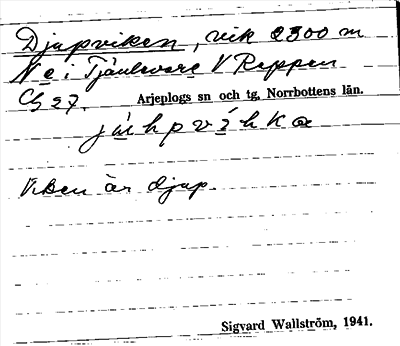 Djupviken, vik 2300 m
N e i Tjäulevare V Rappen
Cg 27. Arjeplogs sn och tg, Norrbottens län.
Viken är djup.
Sigvard Wallström, 1941.